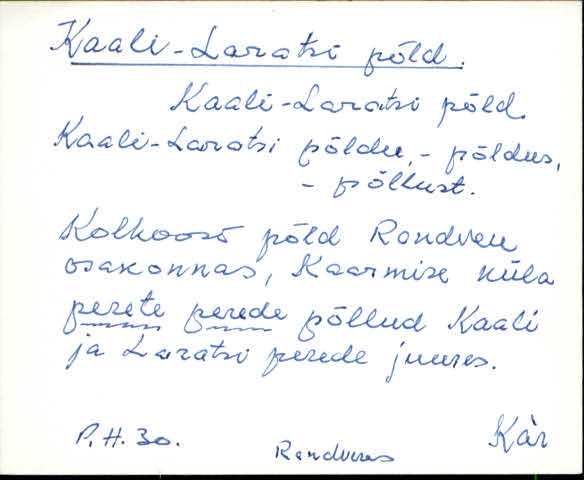 Kaali-Laratsi põld.
Kaali-Laratsi põld.
Kaali-Laratsi põldu, - põldus,
- põllust.
Kolhoosi põld Randvere
osakonnas, Kaarmise küla
perete perede põllud Kaali
ja Laratsi perede juures.
P.H. 30.
Randveres
Kär